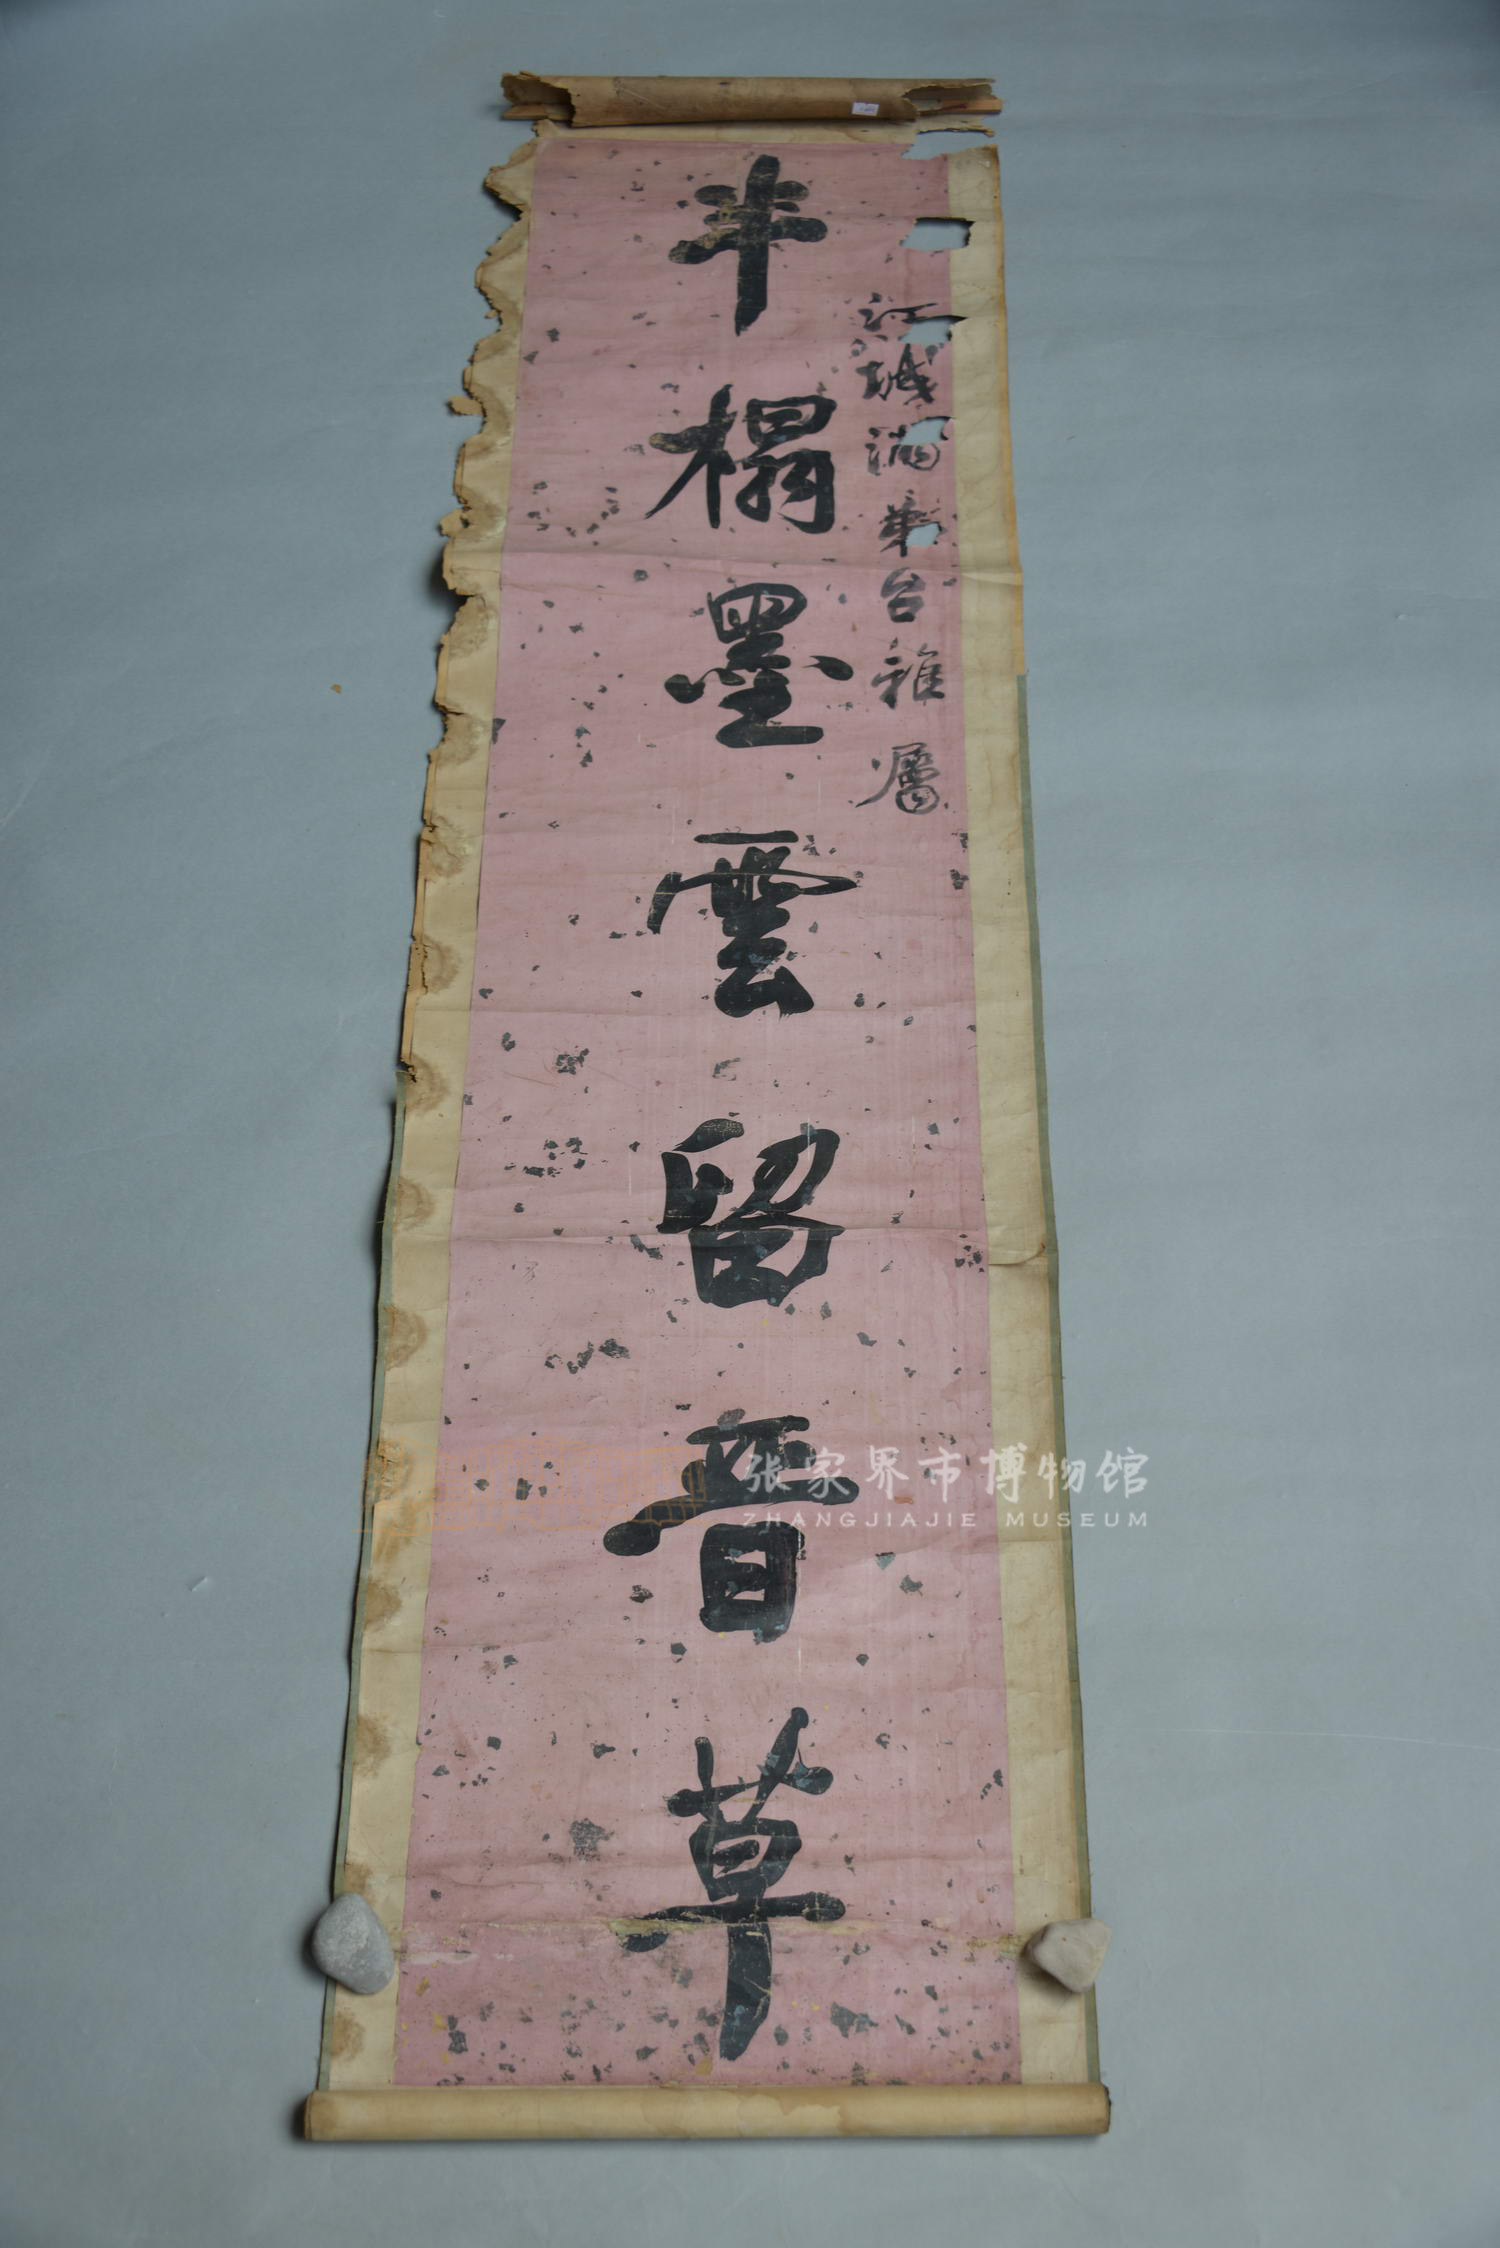 江城滿弟台雅屬
半榻墨雲留晉草
张家界市博物馆
ZHANGJIAJIE MUSEUM